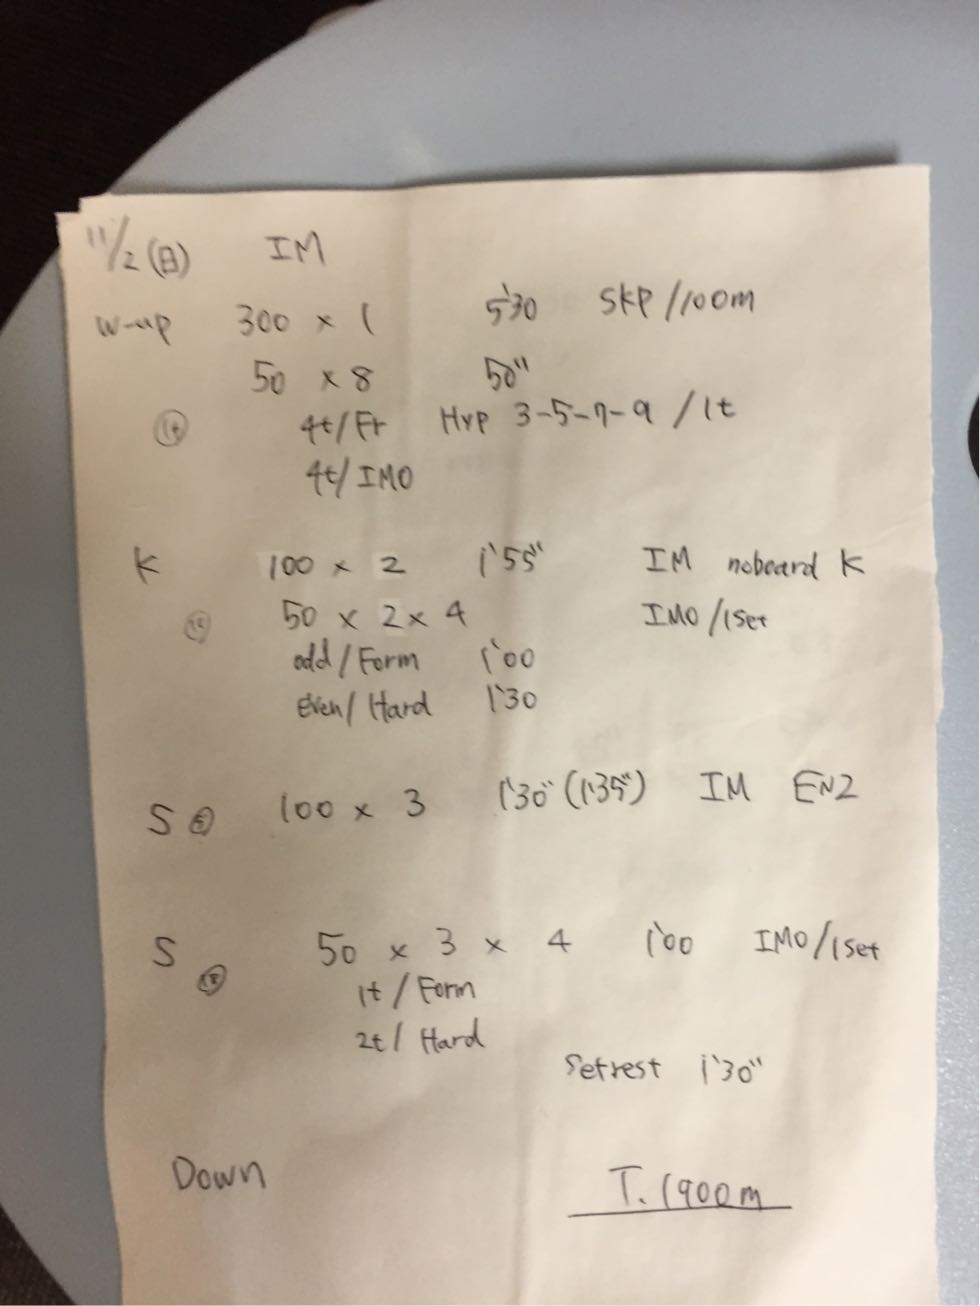 11/2(日) IM
W-up 300 × 1 5'30 SKP/100m
50 × 8 50"
4t/Fr Hyp 3-5-7-9 /1t
4t/IMO
K 100 × 2 1'55" IM noboard K
50 × 2 × 4 IMO/1set
odd/Form 1'00
Even/Hard 1'30
S 100 × 3 1'30"(1'35") IM EN2
S 50 × 3 × 4 1'00 IMO/1set
1t/Form
2t/Hard
Setrest 1'30"
Down T.1900m